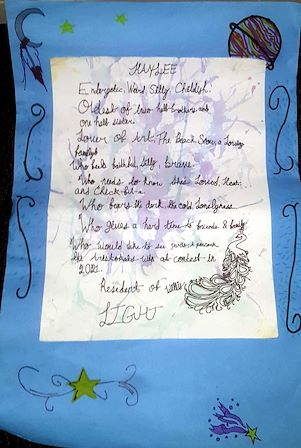 HAYLEE
Energetic, Weird, Silly, Childish.
Oldest of two half-brothers and
one half sister.
Lover of Art, The Beach, a Loving
family
Who feels faithful, Silly, brave
Who needs to know She's Loved,
and Check-in
Who fears the dark, the cold, Loneliness
Who gives a hard time to friends & family
Who would like to see
win art contest in
2021.
Resident of
LIGHT